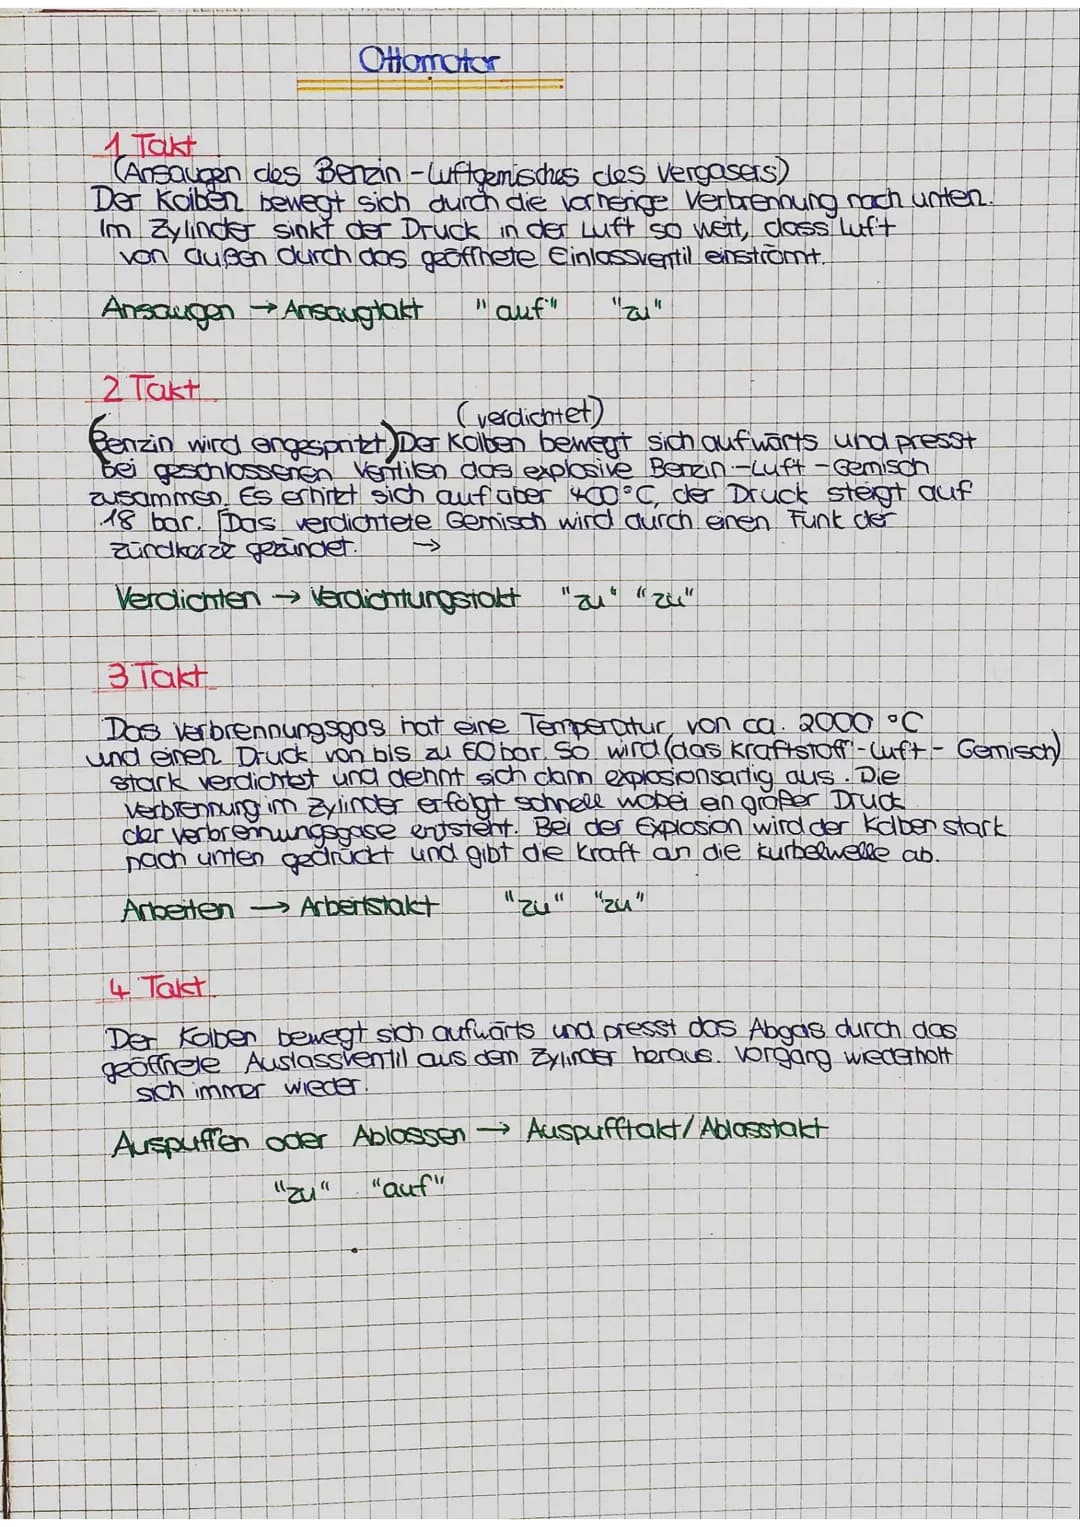 Ottomotor
1 Takt
(Ansaugen des Benzin-Luftgemisches des Vergasers)
Der Kolben bewegt sich durch die vorherige Verbrennung nach unten.
Im Zylinder sinkt der Druck in der Luft so weit, dass Luft
von außen durch das geöffnete Einlassventil einströmt.
Ansaugen → Ansaugtakt "auf" "zu"
2 Takt
(verdichtet)
(Benzin wird eingespritzt.) Der Kolben bewegt sich aufwärts und presst
bei geschlossenen Ventilen das explosive Benzin-Luft-Gemisch
zusammen. Es erhitzt sich auf über 400°C, der Druck steigt auf
18 bar. [Das verdichtete Gemisch wird durch einen Funk der
Zündkerze gezündet. →
Verdichten → Verdichtungstakt "zu" "zu"
3 Takt
Das Verbrennungsgas hat eine Temperatur von ca. 2000 °C
und einen Druck von bis zu 60 bar. So wird (das Kraftstoff-Luft-Gemisch)
stark verdichtet und dehnt sich dann explosionsartig aus. Die
Verbrennung im Zylinder erfolgt schnell wobei ein großer Druck
der Verbrennungsgase entsteht. Bei der Explosion wird der Kolben stark
nach unten gedrückt und gibt die Kraft an die Kurbelwelle ab.
Arbeiten → Arbeitstakt "zu" "zu"
4 Takt
Der Kolben bewegt sich aufwärts und presst das Abgas durch das
geöffnete Auslassventil aus dem Zylinder heraus. Vorgang wiederholt
sich immer wieder.
Auspuffen oder Ablassen → Auspufftakt/Ablasstakt
"zu" "auf"